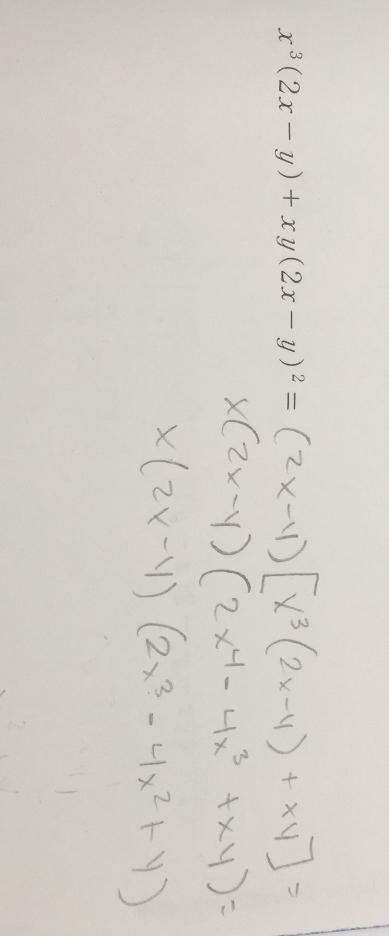 x³(2x − y) + xy(2x − y)² = (2x-y)[x³(2x-y) + xy] =
x(2x-y)(2x⁴ - yx³ + xy) =
x(2x-y)(2x³ - yx² + y)